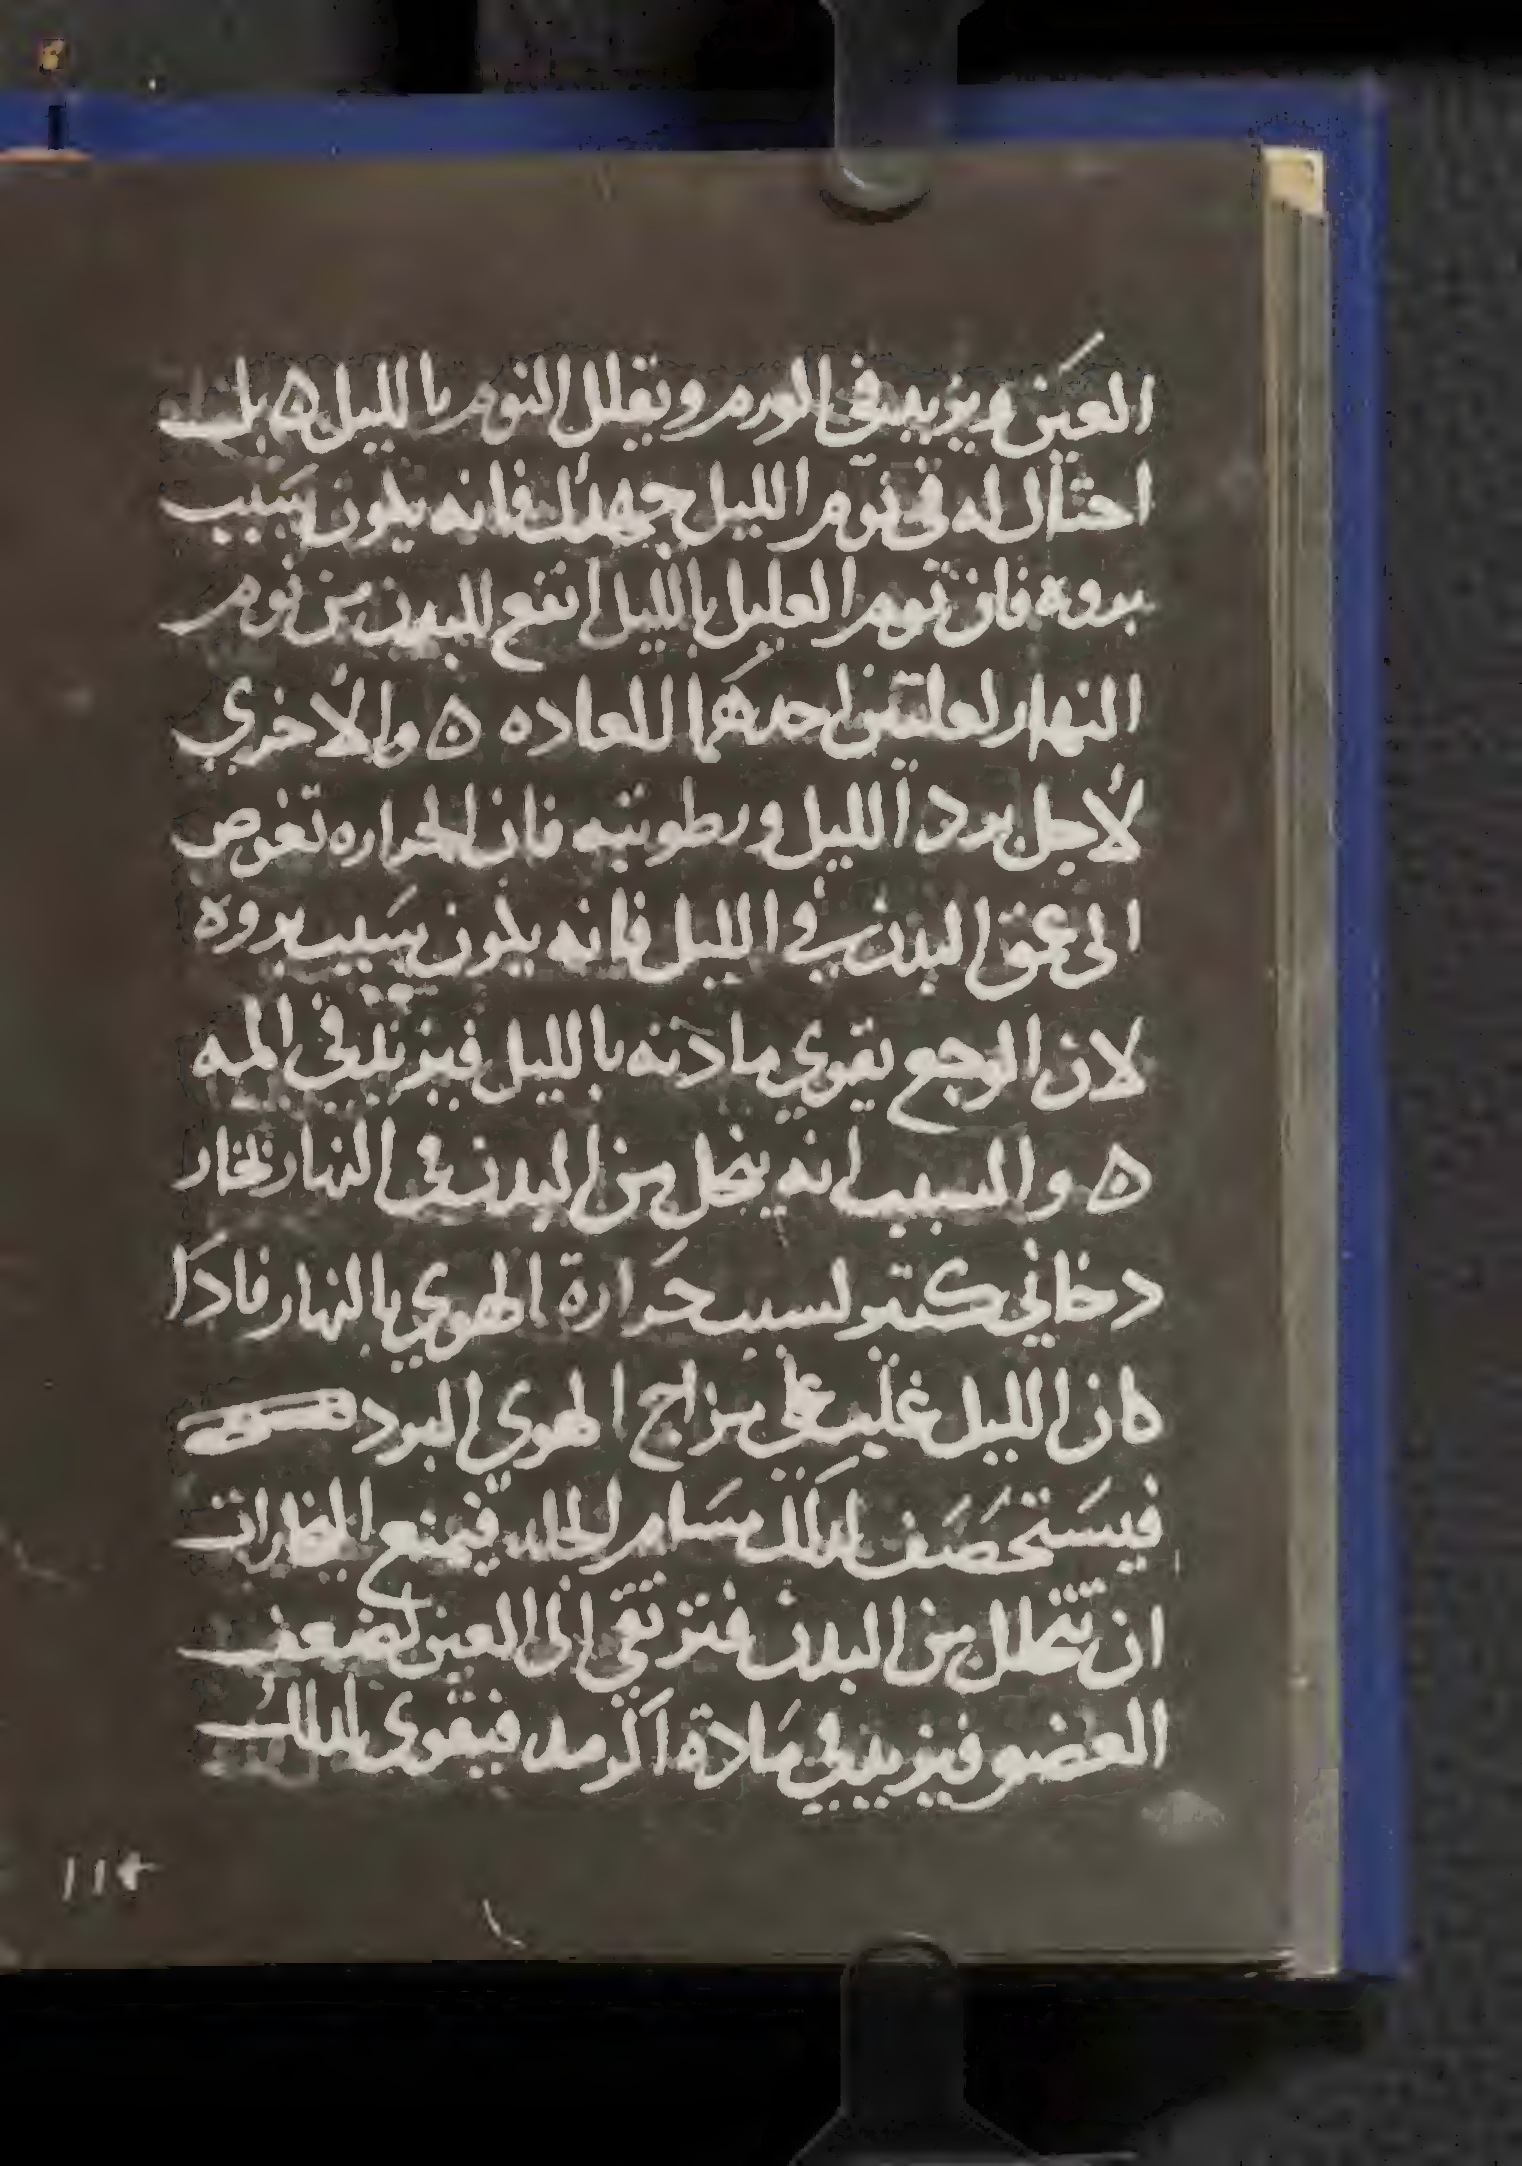 العين ويزيد في الورم ويقلل النوم بالليل ه بل
احتال له في نوم الليل جهدك فانه يكون سبب
بروه فان نوم العليل بالليل انفع للبدن من نوم
النهار لعلتين احدهما للعاده ه والاخري
لاجل برد الليل ورطوبته فان الحراره تغوص
الى عمق البدن في الليل فانه يكون سبب بروه
لان الوجع تقوي مادته بالليل فيزيد في المه
ه والسبب انه ينحل من البدن في النهار بخار
دخاني كثير لسبب حرارة الهوي بالنهار فاذا
كان الليل غلب على مزاج الهوي البرد
فيستحصف لذلك مسام الجلد فيمنع البخارات
ان تتحلل من البدن فترتقي الى العين لضعف
العضو فيزيد في مادة الرمد فيقوى لذلك